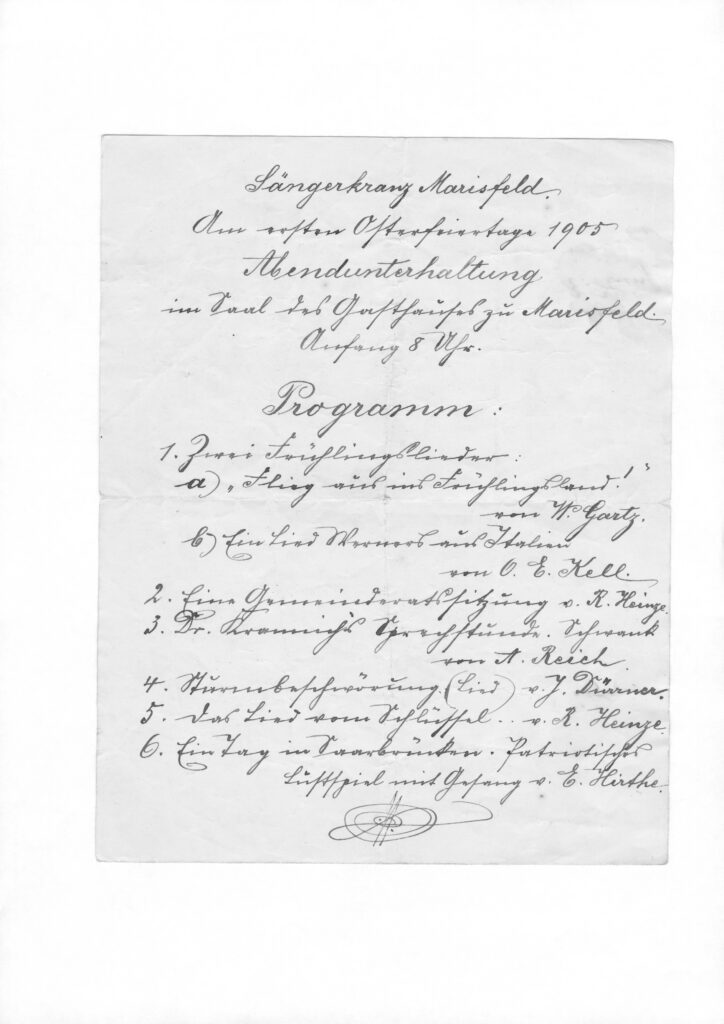 Sängerkranz Marisfeld.
Am ersten Osterfeiertage 1905
Abendunterhaltung
im Saal des Gasthauses zu Marisfeld.
Anfang 8 Uhr.
Programm:
1. Zwei Frühlingslieder:
a) „Flieg aus ins Frühlingsland!"
von W. Gartz.
b) Ein Lied Werners aus Italien
von O. E. Kell.
2. Eine Gemeinderatssitzung v. R. Heinze.
3. Dr. Krannich's Sprechstunde. Schwank
von A. Reich.
4. Sturmbeschwörung (Lied) v. J. Dürrner.
5. Das Lied vom Schlüssel.. v. R. Heinze.
6. Ein Tag in Saarbrücken. Patriotisches
Lustspiel mit Gesang v. E. Hirthe.